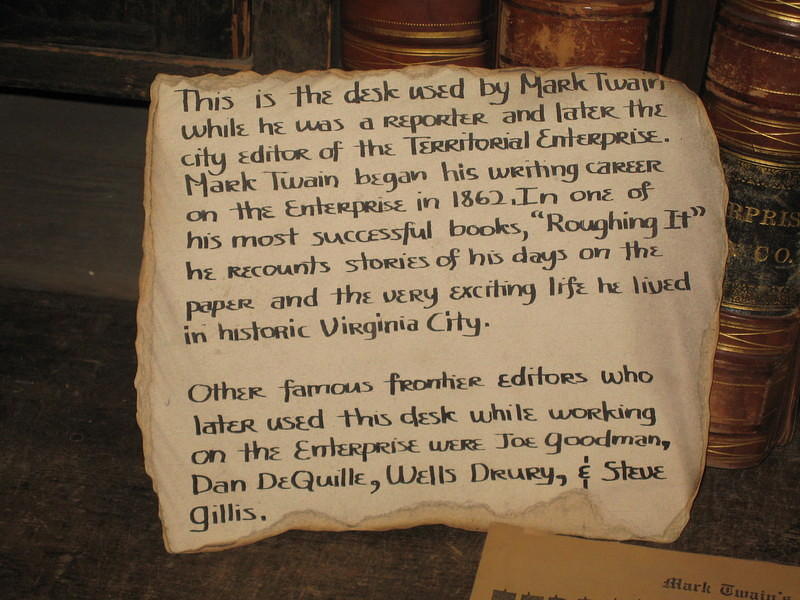 This is the desk used by Mark Twain
while he was a reporter and later the
city editor of the Territorial Enterprise.
Mark Twain began his writing career
on the Enterprise in 1862. In one of
his most successful books, "Roughing It"
he recounts stories of his days on the
paper and the very exciting life he lived
in historic Virginia City.
Other famous frontier editors who
later used this desk while working
on the Enterprise were Joe Goodman,
Dan DeQuille, Wells Drury, & Steve
Gillis.
RPRIS
CO.
Mark Twain's